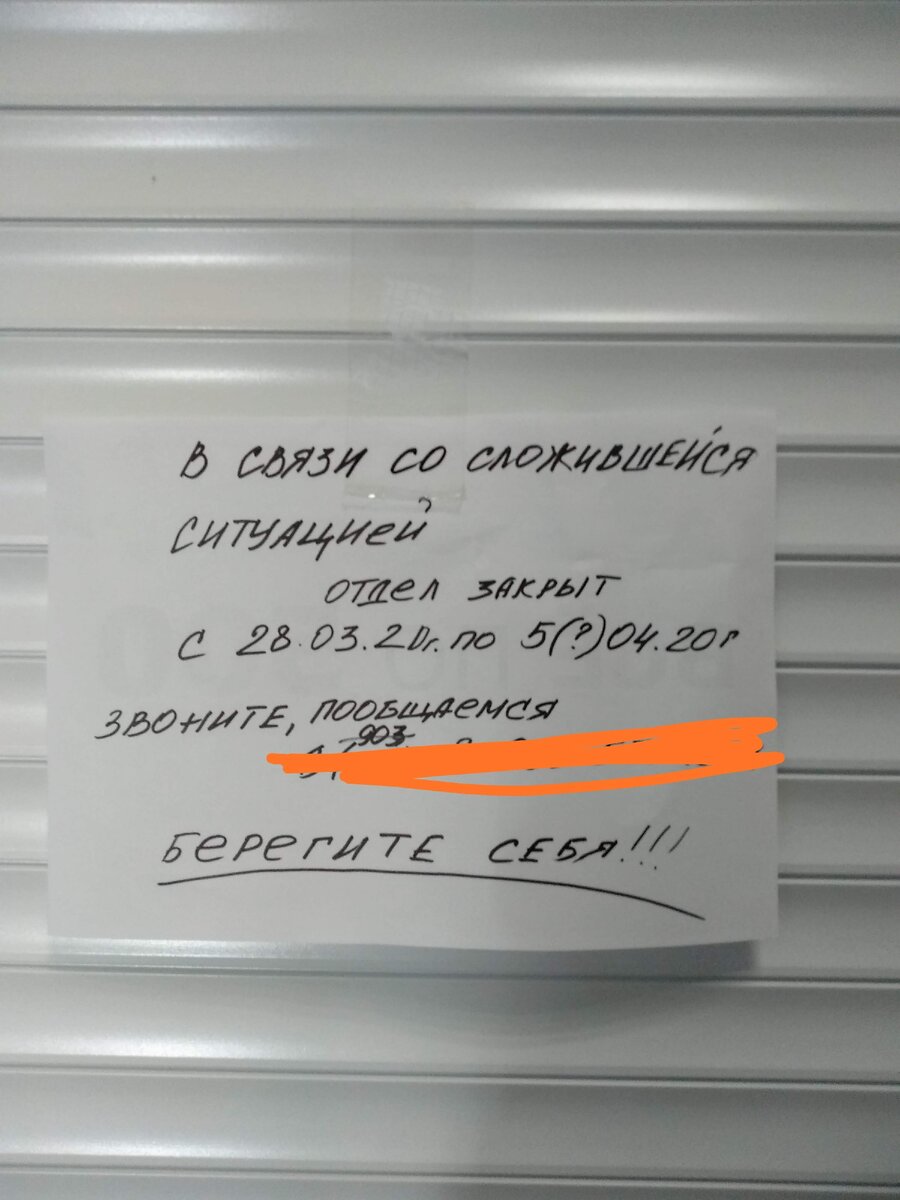 В СВЯЗИ СО СЛОЖИВШЕЙСЯ
СИТУАЦИЕЙ
ОТДЕЛ ЗАКРЫТ
С 28.03.20г. ПО 5(?)04.20г
ЗВОНИТЕ, ПООБЩАЕМСЯ
903
БЕРЕГИТЕ СЕБЯ!!!